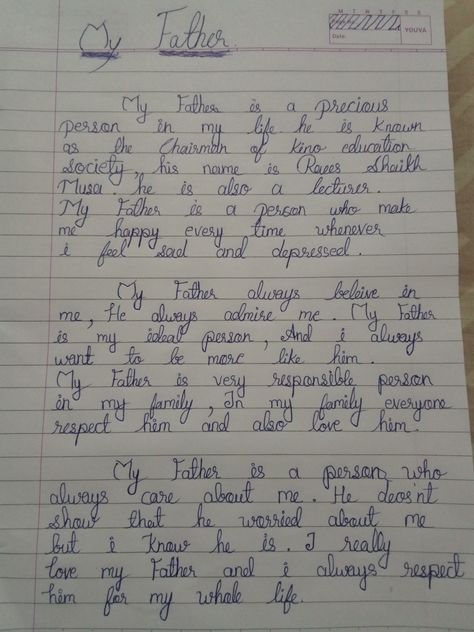 My Father.
M T W T F S S
Date:
YOUVA
My Father is a precious
person in my life. he is known
as the Chairman of kino education
society, his name is Raees Shaikh
Musa. he is also a lecturer.
My Father is a person who make
me happy every time whenever
i feel sad and depressed.
My Father always beleive in
me, He always admire me. My Father
is my ideal person, And i always
want to be more like him.
My Father is very responsible person
in my family, In my family everyone
respect him and also love him.
My Father is a person who
always care about me. He deosnt
show that he worried about me
but i know he is. I really
love my Father and i always respect
him for my whole life.